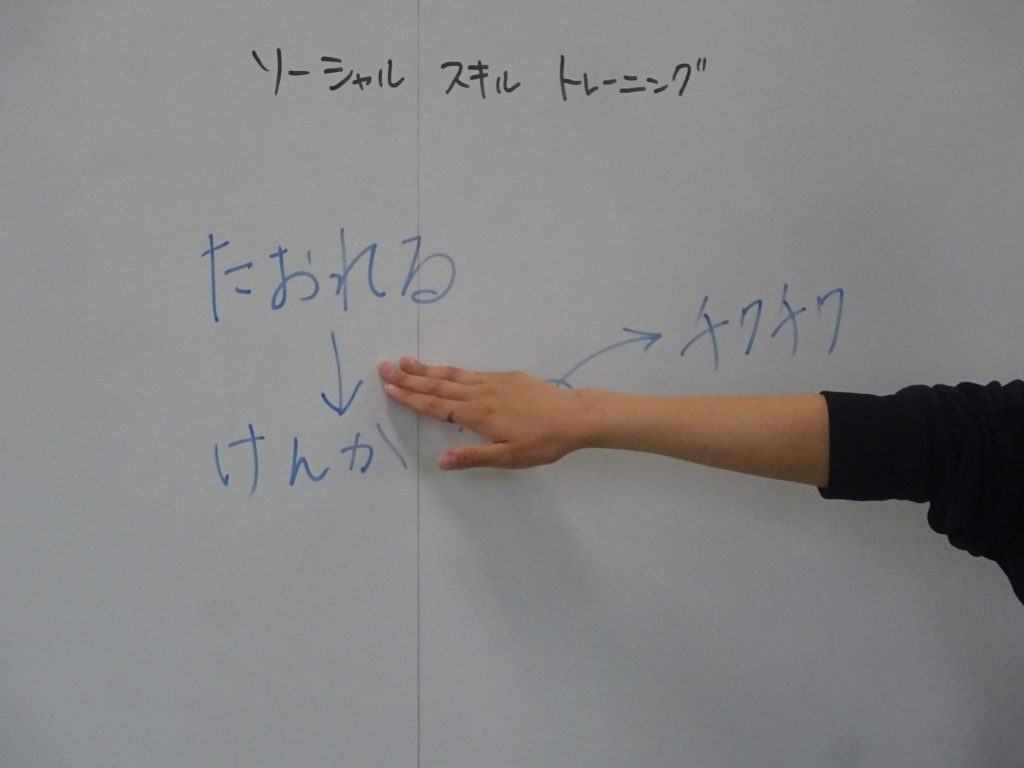 ソーシャル スキル トレーニング
たおれる
↓
けんか
→ チクチク